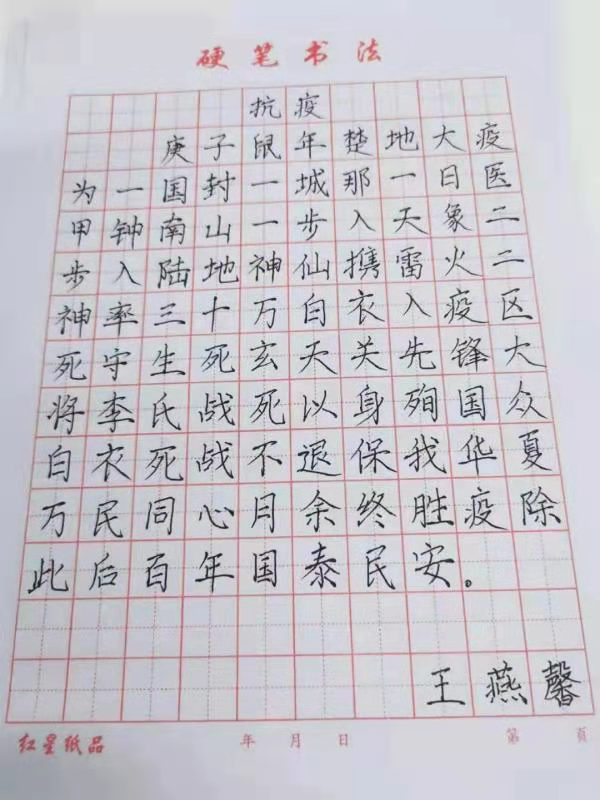 硬笔书法
抗疫
庚子鼠年楚地大疫
为一国封一城那一日医
甲钟南山一步入天象二
步入陆地神仙携雷火二
神率三十万白衣入疫区
死守生死玄天关先锋大
将李氏战死以身殉国众
白衣死战不退保我华夏
万民同心月余终胜疫除
此后百年国泰民安。
王燕馨
红星纸品 年 月 日 第 页